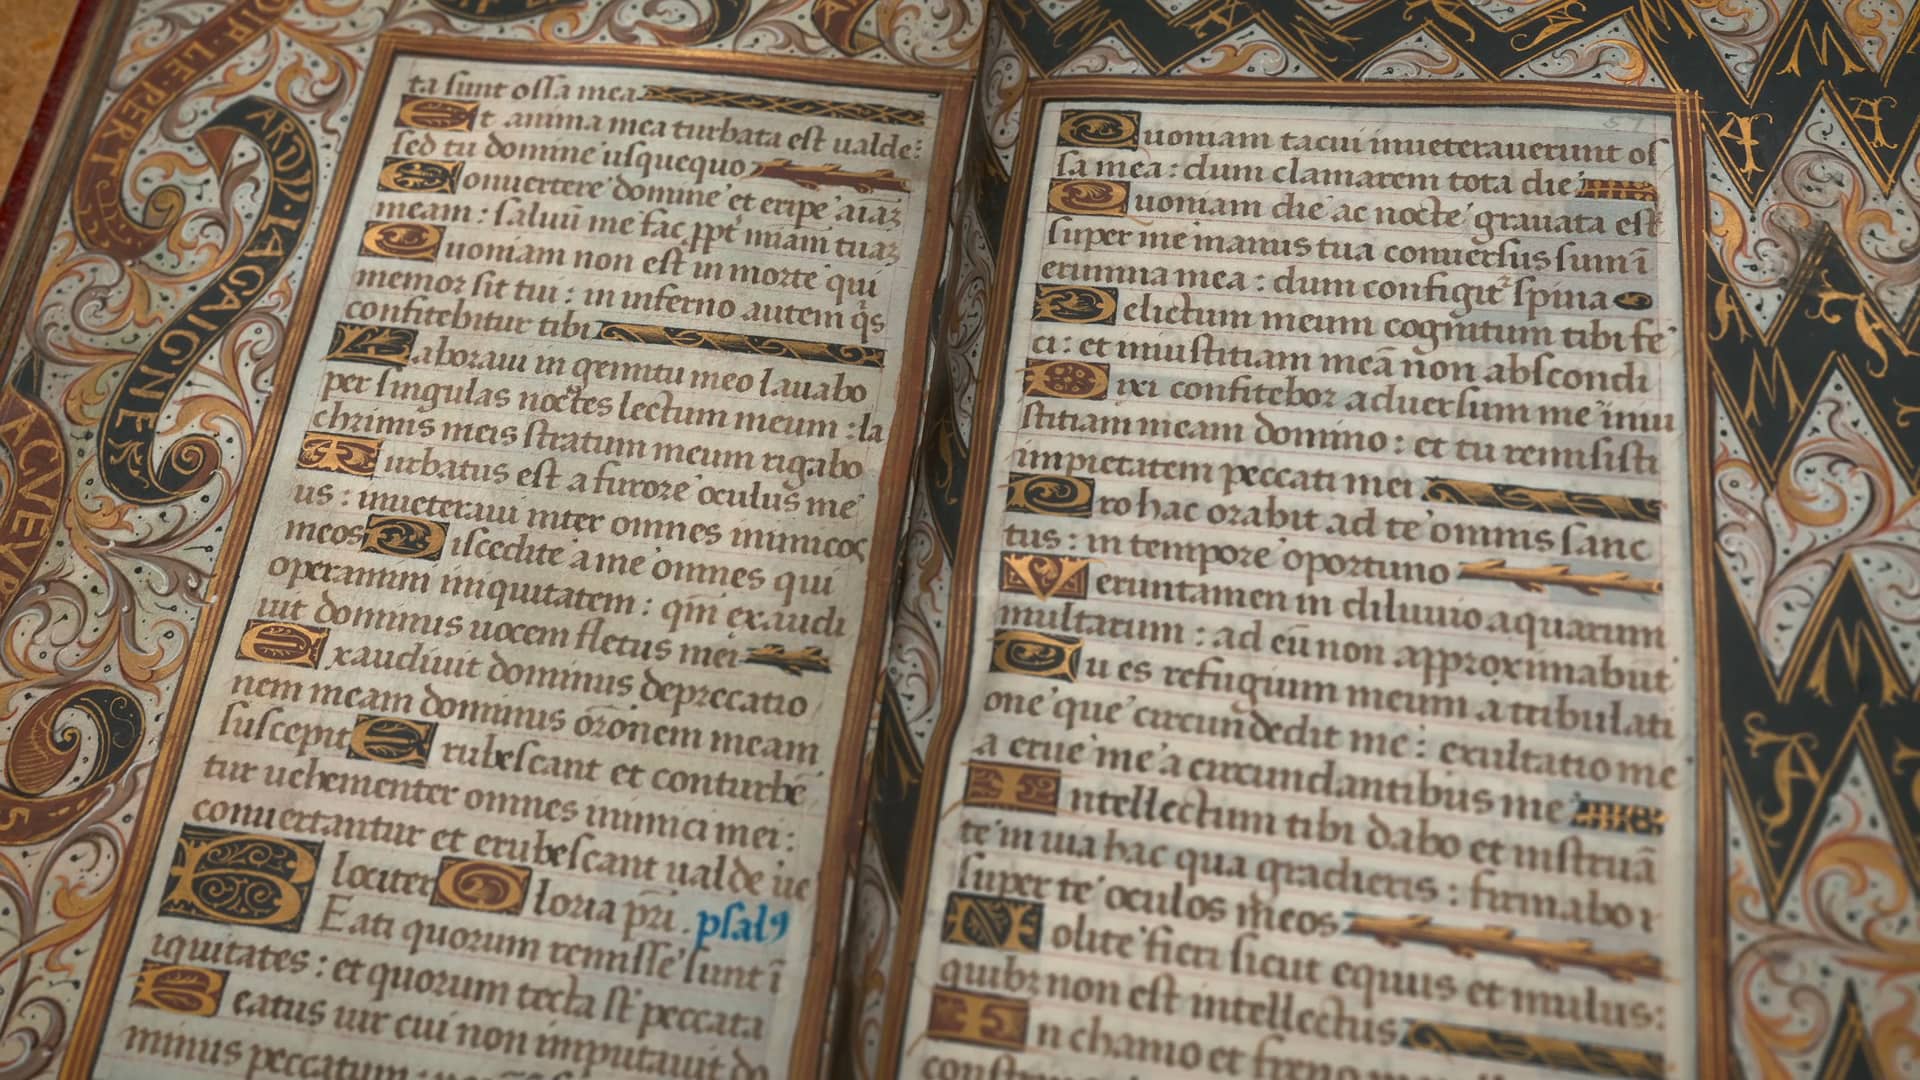 ta sunt ossa mea
Et anima mea turbata est ualde:
sed tu domine usquequo
Conuertere domine et eripe aiaȝ
meam : saluū me fac ꝓpt̄ miam tuaȝ
Quoniam non est in morte qui
memor sit tui : in inferno autem q̄s
confitebitur tibi
Laboraui in gemitu meo lauabo
per singulas noctes lectum meum : la
chrimis meis stratum meum rigabo
Turbatus est a furore oculus me
us : inueteraui inter omnes inimicos
meos Discedite a me omnes qui
operamini iniquitatem : qm̄ exaudi
uit dominus uocem fletus mei
Exaudiuit dominus deprecatio
nem meam dominus orōnem meam
suscepit Erubescant et conturbē
tur uehementer omnes inimici mei :
conuertantur et erubescant ualde ue
lociter Gloria pr̄i. psalꝰ
BEati quorum remisse sunt ī
iquitates : et quorum tecta st̄ peccata
Beatus uir cui non imputauit do
minus peccatum :
Quoniam tacui inueterauerunt os
sa mea : dum clamarem tota die
Quoniam die ac nocte grauata est
super me manus tua conuersus sum ī
erumna mea : dum configit᷑ spina
Delictum meum cognitum tibi fe
ci : et iniustitiam meā non abscondi
Dixi confitebor aduersum me iniu
stitiam meam domino : et tu remisisti
impietatem peccati mei
Pro hac orabit ad te omnis sanc
tus : in tempore oportuno
Veruntamen in diluuio aquarum
multarum : ad eū non approximabūt
Tu es refugium meum a tribulati
one que circundedit me : exultatio me
a erue me a circundantibus me
Intellectum tibi dabo et instruā
te in uia hac qua gradieris : firmabo
super te oculos meos
Nolite fieri sicut equus et mulus :
quibȝ non est intellectus
In chamo et freno
LE·PERT
ARDY·LAGAIGNER
M
A